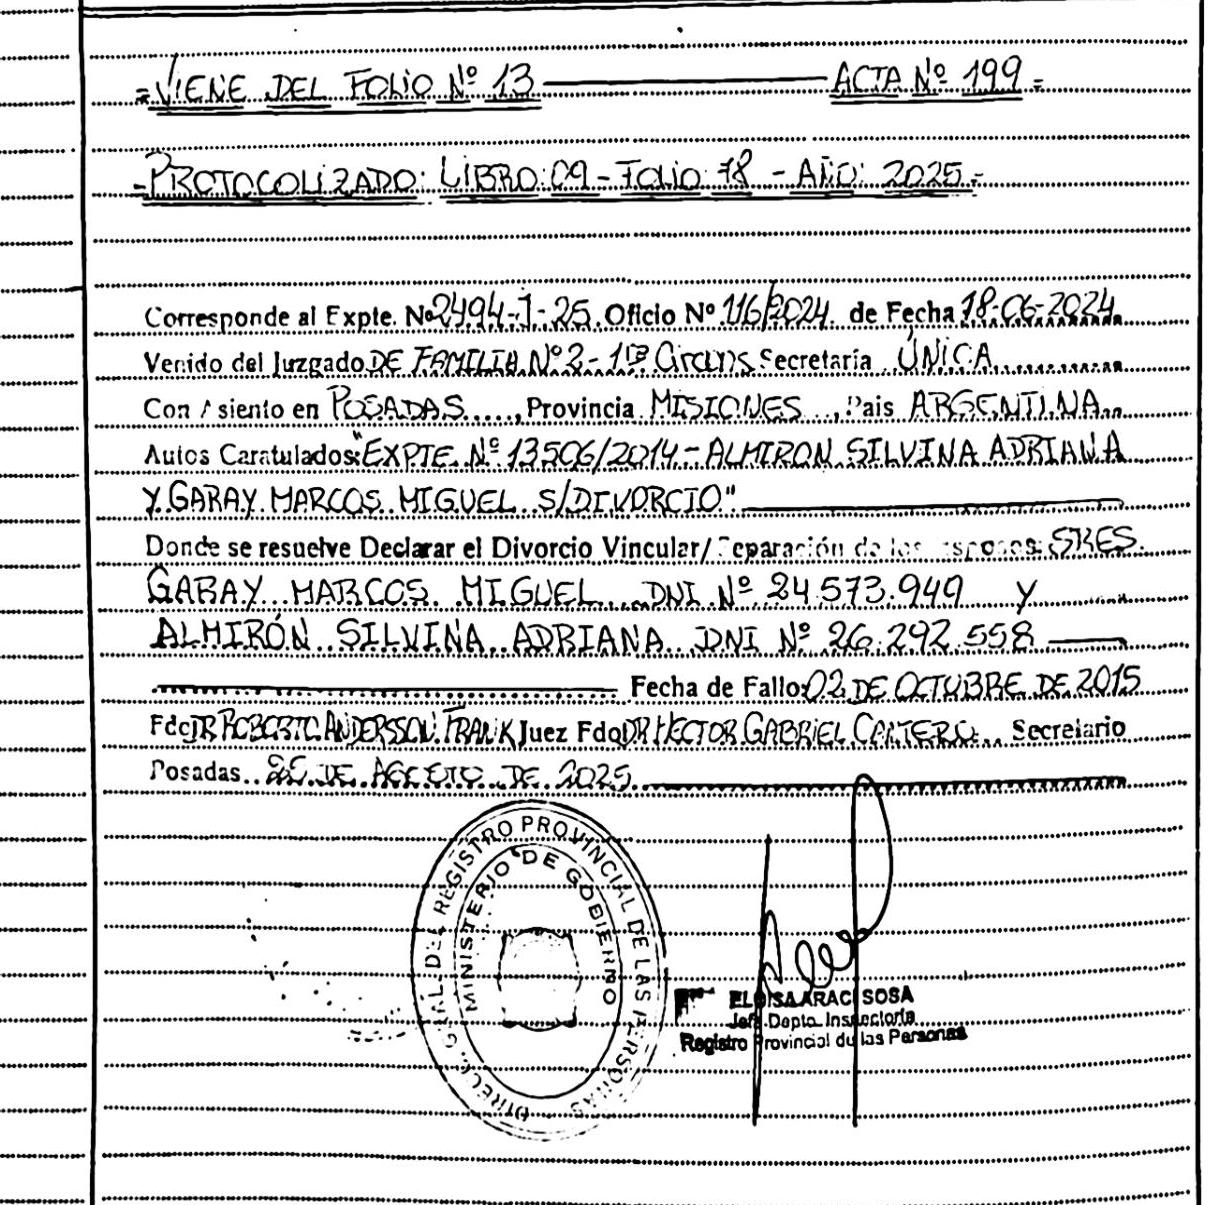 =VIENE DEL FOLIO Nº 13 ACTA Nº 199=
=PROTOCOLIZADO: LIBRO: 09 - FOLIO 78 - AÑO: 2025=
Corresponde al Expte. Nº 2494-J-25. Oficio Nº 116/2024. de Fecha 18-06-2024
Venido del Juzgado DE FAMILIA Nº 2 - 1ra Circuns Secretaría ÚNICA
Con Asiento en POSADAS, Provincia MISIONES, Pais ARGENTINA
Autos Caratulados: "EXPTE. Nº 13506/2014 - ALMIRON SILVINA ADRIANA
Y GARAY MARCOS MIGUEL S/DIVORCIO"
Donde se resuelve Declarar el Divorcio Vincular/ Separación de los esposos: SRES.
GARAY MARCOS MIGUEL DNI Nº 24.573.949 Y
ALMIRÓN SILVINA ADRIANA DNI Nº 26.292.558
Fecha de Fallo: 02 DE OCTUBRE DE 2015
Fdo DR ROBERTO ANDERSSON FRANK Juez Fdo DR HECTOR GABRIEL CANTERO Secretario
Posadas DE AGOSTO DE 2025
DIREC. GRAL. DEL REGISTRO PROVINCIAL DE LAS PERSONAS
MINISTERIO DE GOBIERNO
ELOISA ARACI SOSA
Jefe Depto. Inspectoría
Registro Provincial de las Personas